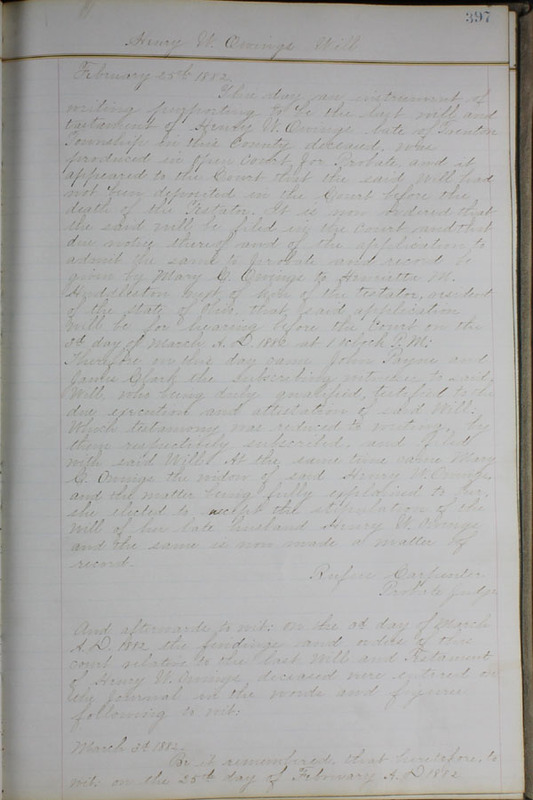 397
Henry W. Owings Will
February 25th 1882
This day an instrument of
writing purporting to be the last will and
testament of Henry W. Owings late of
Township in this County deceased, was
produced in open court for Probate and it
appeared to the Court that the said will had
not been deposited in the Court before the
death of the Testator. It is now ordered that
the said will be filed in the court and that
due notice thereof and of the application to
admit the same to probate and record be
given by Mary C. Owings to Henrietta M.
Huddleston next of kin of the testator, resident
of the State of Ohio, that said application
will be for hearing before the Court on the
3d day of March A.D. 1882 at 1 o'clock P.M.
Therefore on this day came John Payne and
James Clark the subscribing witnesses to said
Will, who being duly qualified, testified to the
due execution and attestation of said Will.
Which testimony was reduced to writing, by
them respectively subscribed and filed
with said Will. At the same time came Mary
C. Owings the widow of said Henry W. Owings
and the matter being fully explained to her,
she elected to accept the stipulation of the
Will of her late husband Henry W. Owings
and the same is now made a matter of
record.
Rufus Carpenter
Probate Judge
And afterwards to wit: on the 3d day of March
A.D. 1882 the findings and orders of this
court relative to the last Will and Testament
of Henry W. Owings, deceased were entered on
the Journal in the words and figures
following to wit:
March 3d 1882.
Be it remembered, that heretofore, to
wit: on the 25th day of February A.D. 1882